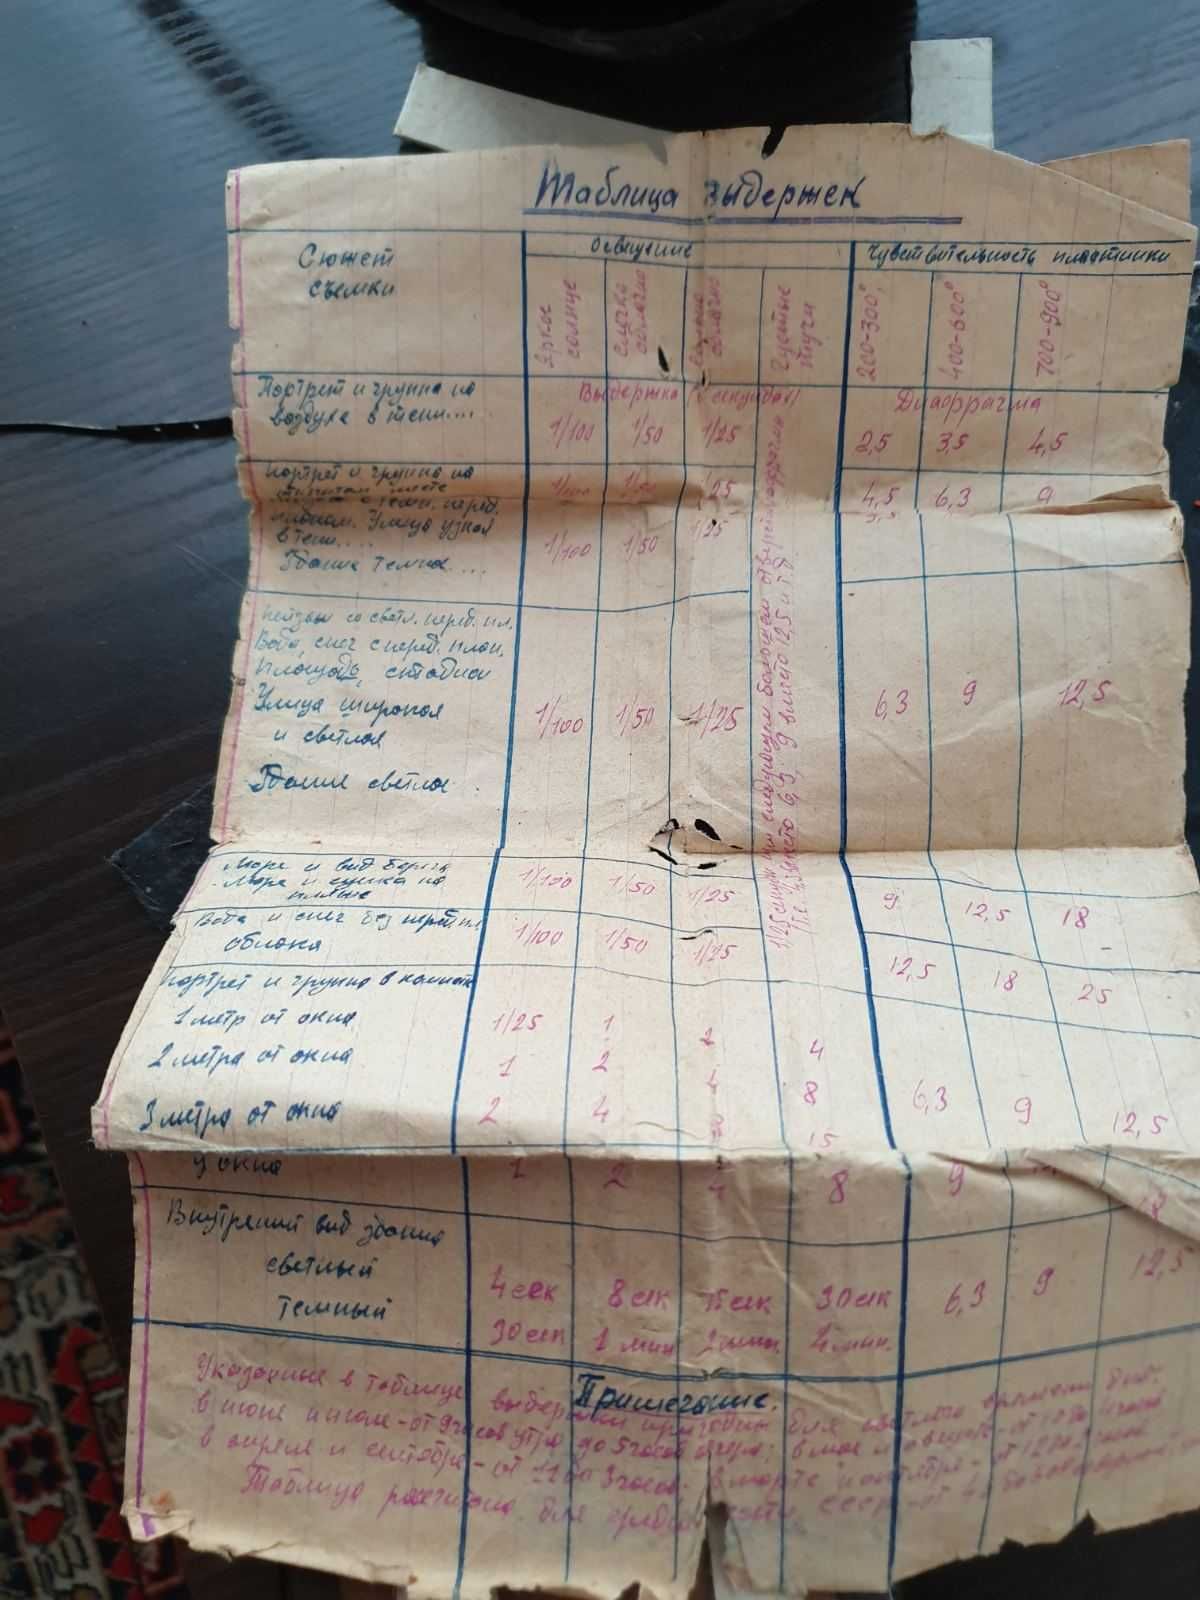 Таблица выдержек
Сюжет
съемки
Освещение
Чувствительность пластинки
Яркое
солнце
слегка
облачно
облачно
Густые
тучи
200-300°
400-600°
700-900°
Портрет и группа на
воздухе в тени....
Выдержка (в секундах)
Диафрагма
1/100 1/50 1/25
2,5 3,5 4,5
Портрет и группа на
открытом месте
1/100 1/50 1/25
4,5 6,3 9
с темн. перед.
планом. Улица узкая
в тени....
1/100 1/50 1/25
Здание темное....
1/25 следующем большем отверстии диафрагмы
т.е. вместо 6,3, 9 вместо 12,5 и т.д.
Пейзаж со светл. перед. пл.
Вода, снег с перед. план.
Площадь, стадион
Улица широкая
и светлая
1/100 1/50 1/25
6,3 9 12,5
Здание светлое.
Море и вид берега
Море и съемка на
пляже
1/100 1/50 1/25
9 12,5 18
Вода и снег без перед. пл.
облака
1/100 1/50 1/25
12,5 18 25
Портрет и группа в комнате
1 метр от окна
1/25 1 2 4
2 метра от окна
1 2 8
6,3 9 12,5
3 метра от окна
2 4 15
У окна
1 2 4 8
9 18
Внутрений вид здания
светлый
4 сек 8 сек 15 сек 30 сек
6,3 9 12,5
темный
30 сек 1 мин 2 мин. 4 мин.
Примечание.
Указанные в таблице выдержки пригодны для светлого времени дня.
в июне июле - от 9 часов утра до 5 часов вечера; в мае и августе - от 10 до 4 часов
в апреле и сентябре - от 11 до 3 часов. в марте и октябре - от 12 до 2 часов
Таблица расчитана для средней части СССР